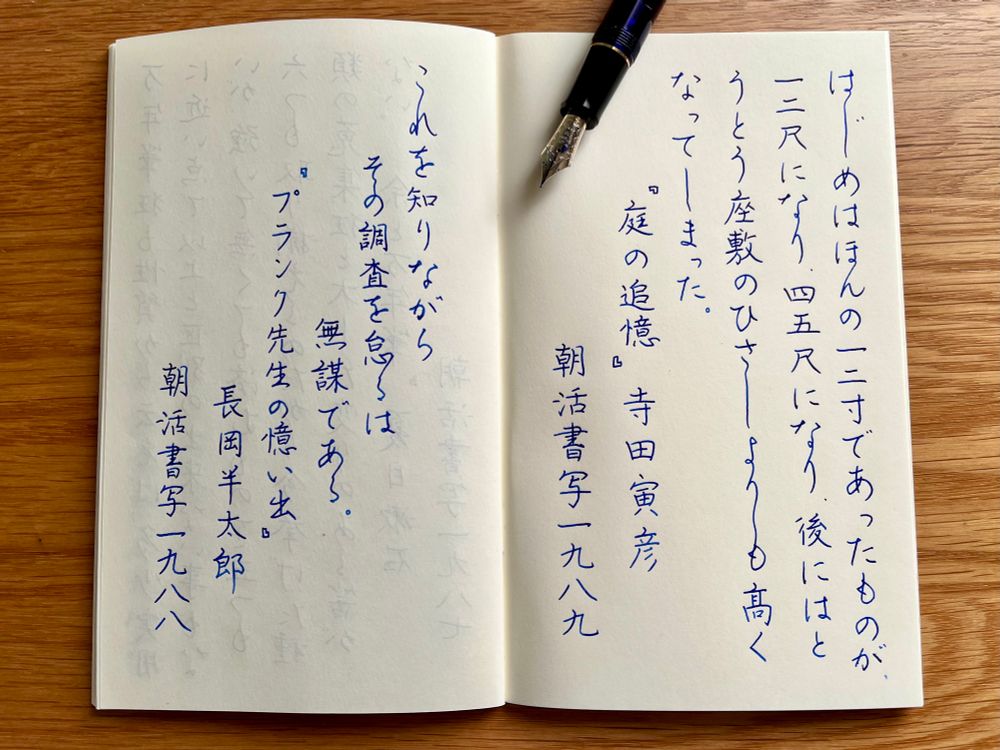 はじめはほんの一二寸であったものが、
一二尺になり、四五尺になり、後にはと
うとう座敷のひさしよりも高く
なってしまった。
『庭の追憶』寺田寅彦
朝活書写一九八九
これを知りながら
その調査を怠るは
無謀である。
『プランク先生の憶い出』
長岡半太郎
朝活書写一九八八